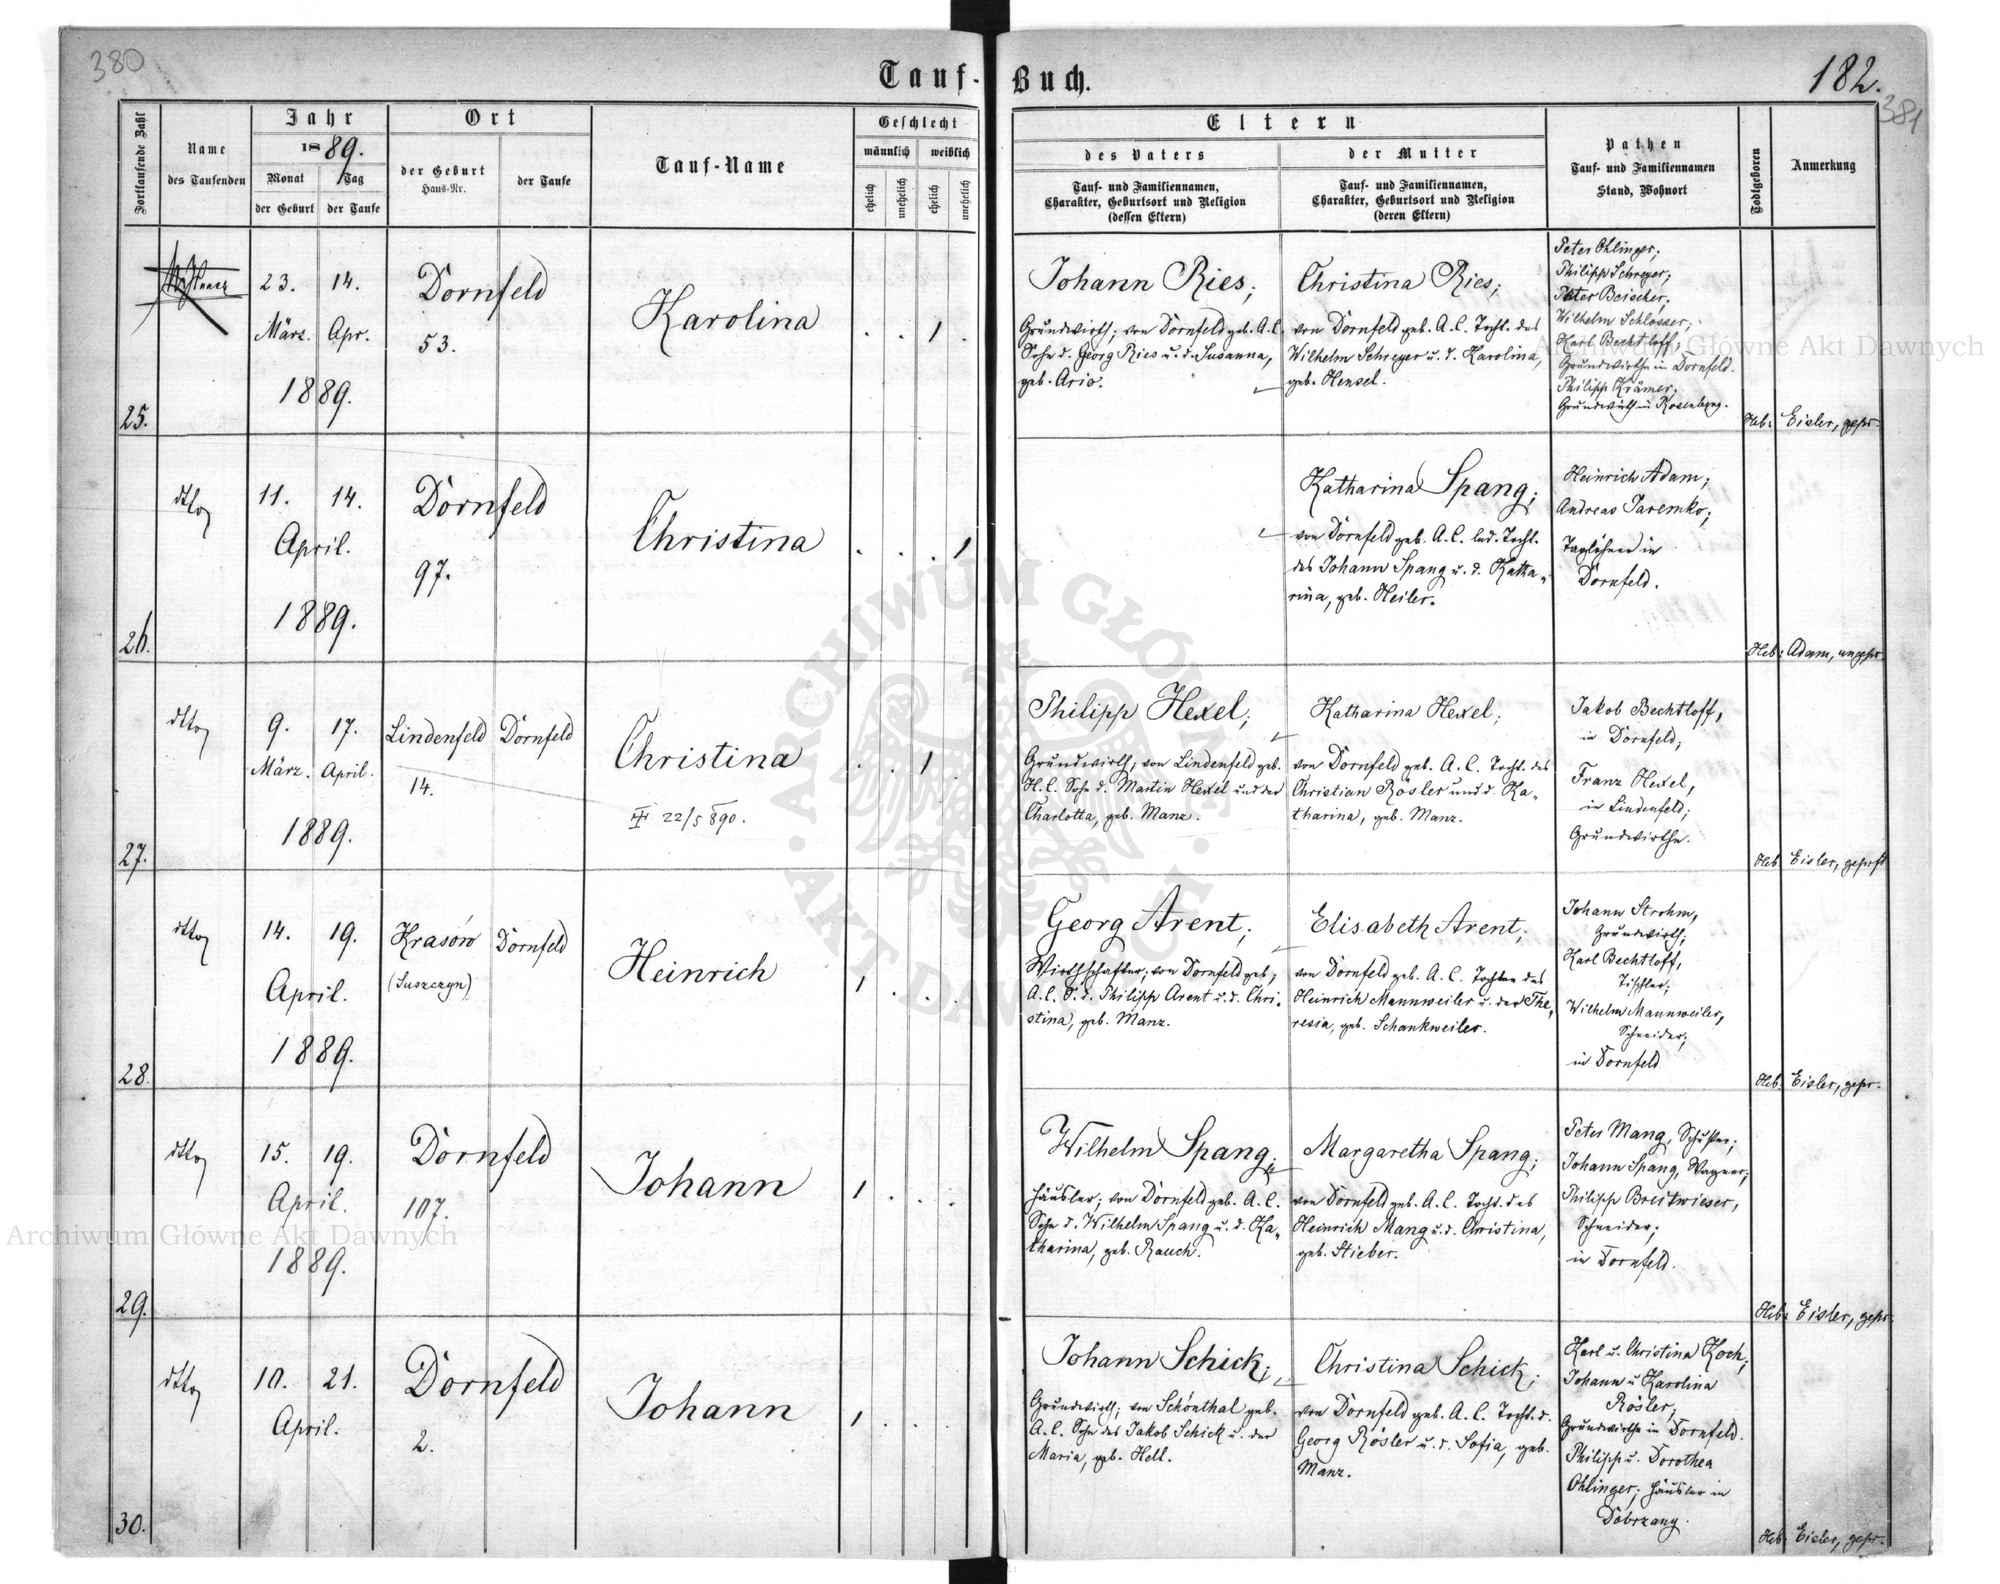 380
Tauf-Buch.
182.
381
Fortlaufende Zahl
Name
des Taufenden
Jahr
1889.
Monat
Tag
der Geburt
der Taufe
Ort
der Geburt
Haus-Nr.
der Taufe
Tauf-Name
Geschlecht
männlich
weiblich
ehelich
unehelich
ehelich
unehelich
Eltern
des Vaters
Tauf- und Familiennamen,
Charakter, Geburtsort und Religion
(dessen Eltern)
der Mutter
Tauf- und Familiennamen,
Charakter, Geburtsort und Religion
(deren Eltern)
Pathen
Tauf- und Familiennamen
Stand, Wohnort
Todtgeboren
Anmerkung
25.
23. 14.
März. Apr.
1889.
Dornfeld
53.
Karolina
1
Johann Ries;
Grundwirth; von Dornfeld geb. A.C.
Sohn d. Georg Ries u. d. Susanna,
geb. Ario.
Christina Ries;
von Dornfeld geb. A.C. Tocht. des
Wilhelm Schreyer u. d. Karolina,
geb. Hensel.
Peter Ohlinger;
Philipp Schreyer;
Peter Beischer.
Wilhelm Schlosser;
Karl Bechtloff;
Grundwirthe in Dornfeld.
Philipp Krämer,
Grundwirth in Rosenberg.
Heb: Eisler, gepr.
26.
dtto
11. 14.
April.
1889.
Dornfeld
97.
Christina
1
Katharina Spang;
von Dornfeld geb. A.C. led. Tocht.
des Johann Spang u. d. Katha-
rina, geb. Heiler.
Heinrich Adam;
Andreas Jaremko;
Taglöhner in
Dornfeld.
Heb: Adam, ungepr.
27.
dtto
9. 17.
März. April.
1889.
Lindenfeld
14.
Dornfeld
Christina
22/5 890.
1
Philipp Hexel;
Grundwirth; von Lindenfeld geb.
H.C. Sohn d. Martin Hexel und der
Charlotta, geb. Manz.
Katharina Hexel;
von Dornfeld geb. A.C. Tocht. des
Christian Rösler und d. Ka-
tharina, geb. Manz.
Jakob Bechtloff,
in Dornfeld;
Franz Hexel,
in Lindenfeld;
Grundwirthe.
Heb. Eisler, geprft
28.
dtto
14. 19.
April.
1889.
Krasów
(Suszczyn)
Dornfeld
Heinrich
1
Georg Arent;
Wirthschafter; von Dornfeld geb;
A.C. S. d. Philipp Arent u. d. Chri-
stina, geb. Manz.
Elisabeth Arent;
von Dornfeld geb. A.C. Tochter des
Heinrich Mannweiler u. der The-
resia, geb. Schankweiler.
Johann Strohm,
Grundwirth;
Karl Bechtloff,
Tischler;
Wilhelm Mannweiler,
Schneider;
in Dornfeld
Heb: Eisler, gepr.
29.
dtto
15. 19.
April.
1889.
Dornfeld
107.
Johann
1
Wilhelm Spang;
Häusler; von Dornfeld geb. A.C.
Sohn d. Wilhelm Spang u. d. Ka-
tharina, geb. Rauch.
Margaretha Spang;
von Dornfeld geb. A.C. Tocht. des
Heinrich Mang u. d. Christina,
geb. Stieber.
Peter Mang, Schuster;
Johann Spang, Wagner;
Philipp Breitwieser,
Schneider;
in Dornfeld.
Heb: Eisler, gepr.
30.
dtto
10. 21.
April.
Dornfeld
2.
Johann
1
Johann Schick;
Grundwirth; von Schönthal geb.
A.C. Sohn des Jakob Schick u. der
Maria, geb. Hell.
Christina Schick;
von Dornfeld geb. A.C. Tocht. d.
Georg Rösler u. d. Sofia, geb.
Manz.
Karl u. Christina Koch;
Johann u Karolina
Rösler;
Grundwirthe in Dornfeld.
Philipp u. Dorothea
Ohlinger; Häusler in
Dobrzany.
Heb: Eisler, gepr.
Archiwum Główne Akt Dawnych
Archiwum Główne Akt Dawnych
ARCHIWUM GŁÓWNE · AKT DAWNYCH ·